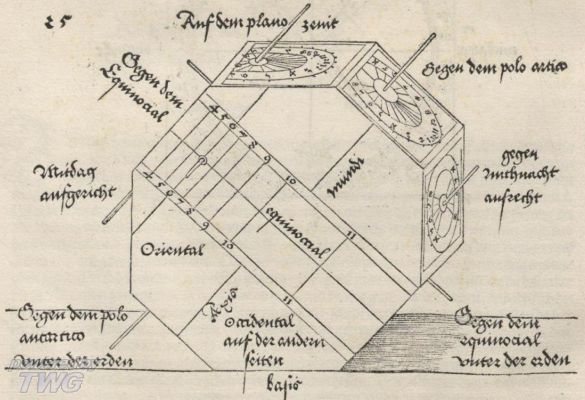 25
Auf dem plano zenit
Gegen dem
Equinocial
Gegen dem polo artico
Mitdag
aufgericht
gegen
mithnacht
aufrecht
4 5 6 7 8 9 10
mundi
equinocial
11
4 5 6 7 8 9 10
11
Oriental
Axis
Occidental
auf der andern
seiten
Gegen dem polo
antartico
unter der erden
Gegen dem
equinocial
unter der erden
basis
TWG